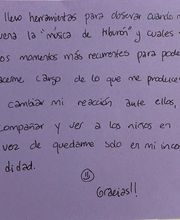 llevo herramientas para observar cuando me
suena la "música de tiburón" y cuales
os momentos más recurrentes para poder
acerme cargo de lo que me produce
cambiar mi reacción ante ellos,
ompañar y ver a los niños en
vez de quedarme solo en mi incom
didad.
Gracias!!